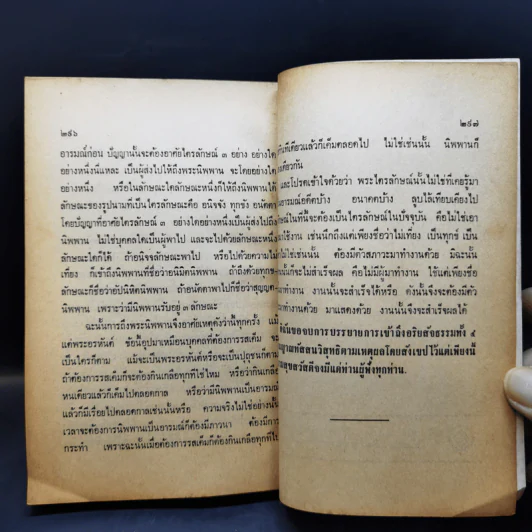 ๒๕๖
อารมณ์ก่อน ปัญญานั้นจะต้องอาศัยไตรลักษณ์ ๓ อย่าง อย่างใด
อย่างหนึ่งนี่แหละ เป็นผู้ส่งไปให้ถึงพระนิพพาน จะโดยอย่างใด
อย่างหนึ่ง หรือในลักษณะใดลักษณะหนึ่งก็ให้ถึงนิพพานได้
ลักษณะของรูปนามที่เป็นไตรลักษณะคือ อนิจจัง ทุกขัง อนัตตา
โดยปัญญาที่อาศัยไตรลักษณ์ ๓ อย่างใดอย่างหนึ่งเป็นผู้ส่งไปถึง
นิพพาน ไม่ใช่บุคคลใดเป็นผู้พาไป และจะไปด้วยลักษณะหนึ่ง
ลักษณะใดก็ได้ ถ้าอนิจจลักษณะพาไป หรือไปด้วยความไม่
เที่ยง ก็เข้าถึงนิพพานที่ชื่อว่าอนิมิตตนิพพาน ถ้าถึงด้วยทุกข
ลักษณะก็ชื่อว่าอัปปนิหิตนิพพาน ถ้าอนัตตาพาไปก็ชื่อว่าสุญญต
นิพพาน เพราะว่ามีนิพพานรับอยู่ ๓ ลักษณะ
ฉะนั้นการถึงพระนิพพานจึงอาศัยเหตุดังว่านี้ทุกครั้ง แม้
แต่พระอรหันต์ ข้อนี้อุปมาเหมือนบุคคลที่ต้องการรสเค็ม จะ
เป็นใครก็ตาม แม้จะเป็นพระอรหันต์หรือจะเป็นปุถุชนก็ตาม
ถ้าต้องการรสเค็มก็จะต้องกินเกลือทุกทีใช่ไหม หรือว่ากินเกลือ
หนเดียวแล้วก็เค็มไปตลอดชาติ หรือว่ามีนิพพานเป็นอารมณ์
แล้วก็มีเรื่อยไปตลอดกาลเช่นนั้นหรือ ความจริงไม่ใช่อย่างนั้น
เวลาจะต้องการนิพพานเป็นอารมณ์ก็ต้องมีภาวนา ต้องมีการ
กระทำ เพราะฉะนั้นเมื่อต้องการรสเค็มก็ต้องกินเกลือทุกที
๒๕๗
ทีเดียวแล้วก็เค็มตลอดไป ไม่ใช่เช่นนั้น นิพพานก็
เดียวกัน
และโปรดเข้าใจด้วยว่า พระไตรลักษณ์นั้นไม่ใช่ที่เคยรู้มา
อารมณ์อดีตบ้าง อนาคตบ้าง ลูบไล้เทียบเคียงไป
ในที่นี้จะต้องเป็นไตรลักษณ์ในปัจจุบัน คือไม่ใช่เอา
ใช้งาน เช่นนึกถึงแต่เพียงชื่อว่าไม่เที่ยง เป็นทุกข์ เป็น
ไม่ใช่เช่นนั้น ต้องมีตัวสภาวะมาทำงานด้วย มิฉะนั้น
ก็จะไม่สำเร็จผล คือไม่มีผู้มาทำงาน ใช้แต่เพียงชื่อ
ทำงาน งานนั้นจะสำเร็จได้หรือ ดังนั้นจึงจะต้องมีตัว
ทำงานด้วย มาแสดงด้วย งานนั้นจึงจะสำเร็จได้
ของบการบรรยายการเข้าถึงอริยสัจธรรมทั้ง ๔
ญาณทัสสนวิสุทธิตามเหตุผลโดยสังเขปไว้แต่เพียงนี้
สุขสวัสดีจงมีแด่ท่านผู้ฟังทุกท่าน.